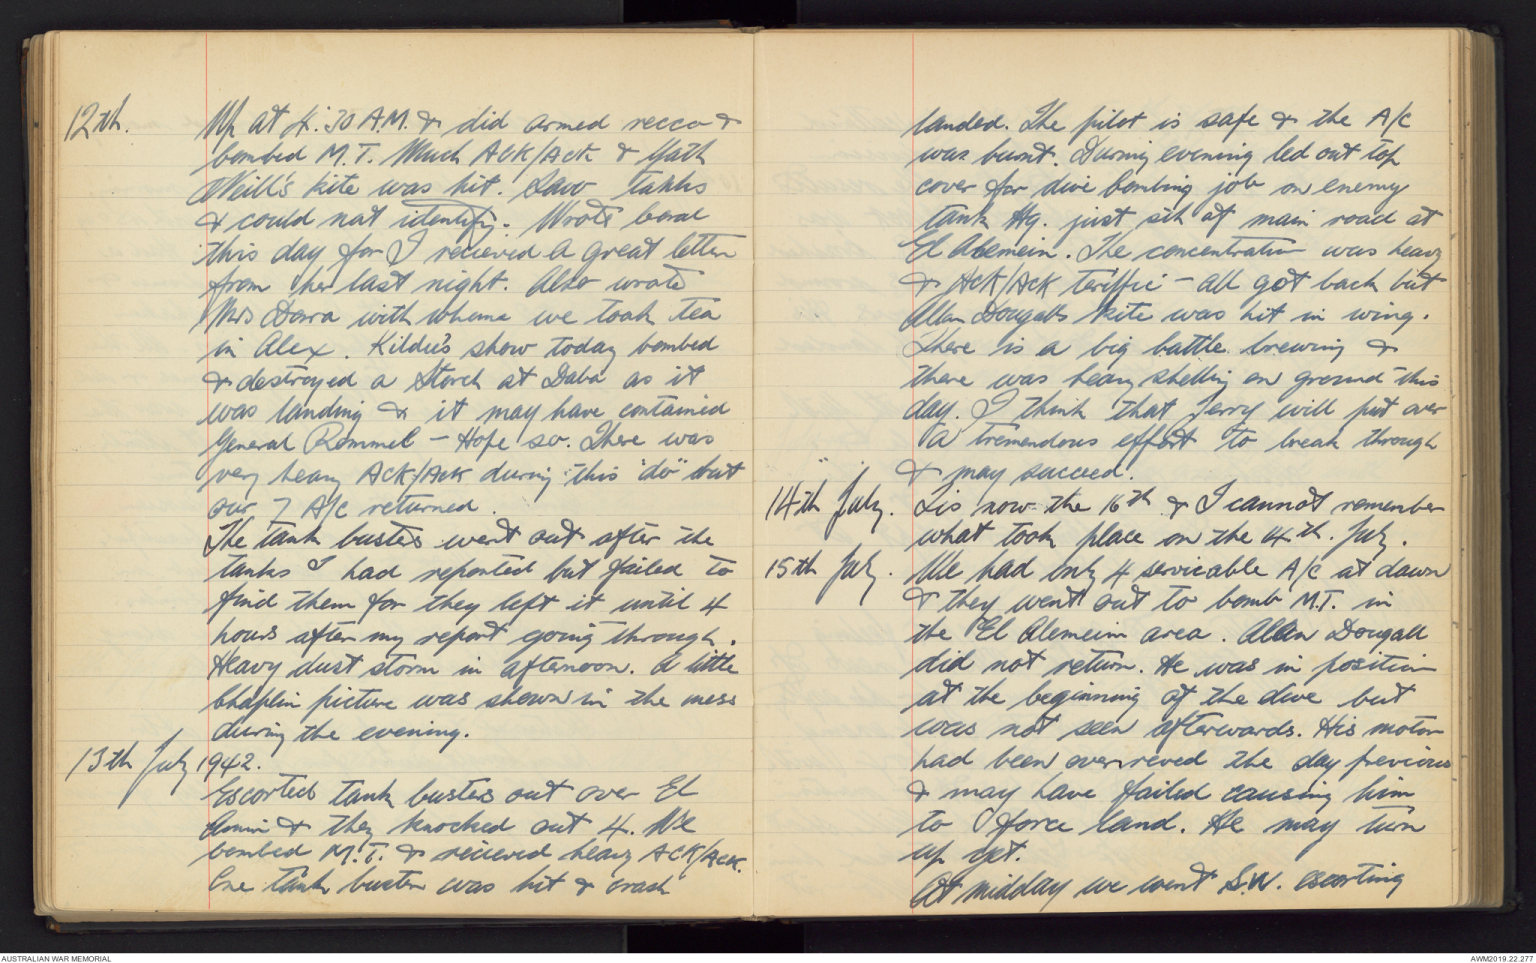 12th. Up at 4.30 A.M. & did armed recco &
bombed M.T. Much Ack/Ack & Gath
O'Neill's kite was hit. Saw tanks
& could not identify. Wrote
this day for I recieved a great letter
from her last night. Also wrote
Mrs Darra with whome we took tea
in Alex. Kildie's show today bombed
& destroyed a Storch at Daba as it
was landing & it may have contained
General Rommel - Hope so. There was
very heavy Ack/Ack during this "do" but
our 7 A/c returned.
The tank busters went out after the
tanks I had reported but failed to
find them for they left it until 4
hours after my report going through.
Heavy dust storm in afternoon. A little
Chaplin picture was shown in the mess
during the evening.
13th July 1942.
Escorted tank busters out over El
& they knocked out 4. We
bombed M.T. & recieved heavy ACK/ACK.
One tank buster was hit & crash
landed. The pilot is safe & the A/c
was burnt. During evening led out top
cover for dive bombing job on enemy
tank Hq. just sth of main road at
El Alemein. The concentration was heavy
& Ack/Ack teriffic - all got back but
Allan Dougalls kite was hit in wing.
There is a big battle brewing &
there was heavy shelling on ground this
day. I think that Jerry will put over
a tremendous effort to break through
& may succeed.
14th July. Tis now the 16th & I cannot remember
what took place on the 14th. July.
15th July. We had only 4 servicable A/c at dawn
& they went out to bomb M.T. in
the El Alemein area. Alan Dougall
did not return. He was in position
at the beginning of the dive but
was not seen afterwards. His motor
had been overreved the day previous
& may have failed causing him
to force land. He may turn
up yet.
At midday we went S.W. escorting
AUSTRALIAN WAR MEMORIAL
AWM2019.22.277